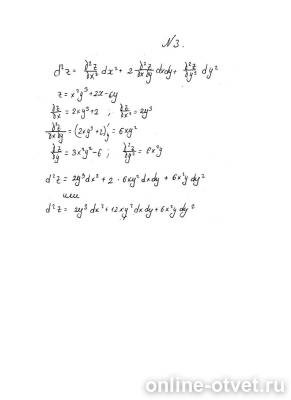 №3.
d²z = ∂²z/∂x² dx² + 2 ∂²z/∂x∂y dxdy + ∂²z/∂y² dy²
z = x²y³ + 2x - 6y
∂z/∂x = 2xy³ + 2 ; ∂²z/∂x² = 2y³
∂²z/∂x∂y = (2xy³ + 2)'y = 6xy²
∂z/∂y = 3x²y² - 6 ; ∂²z/∂y² = 6x²y
d²z = 2y³dx² + 2 · 6xy² dxdy + 6x²y dy²
или
d²z = 2y³ dx² + 12xy² dxdy + 6x²y dy²
online-otvet.ru